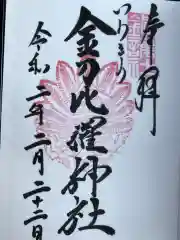 奉拝
いわきの
金刀比羅神社
令和二年二月二十二日